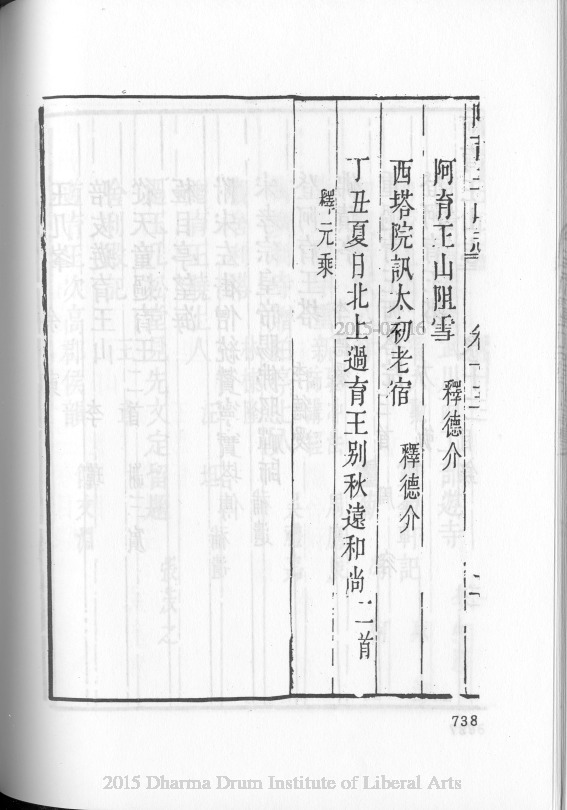 阿育王山阻雪
釋德介
西塔院訊太初老宿
釋德介
丁丑夏日北上過育王別秋遠和尚二首
釋元乘
738
2015 Dharma Drum Institute of Liberal Arts